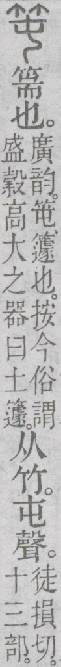 𥫱篅也。
廣韵。𥫱、籧也。按今俗謂
盛穀高大之器曰土籧。
从竹。屯聲。
徒損切。
十三部。